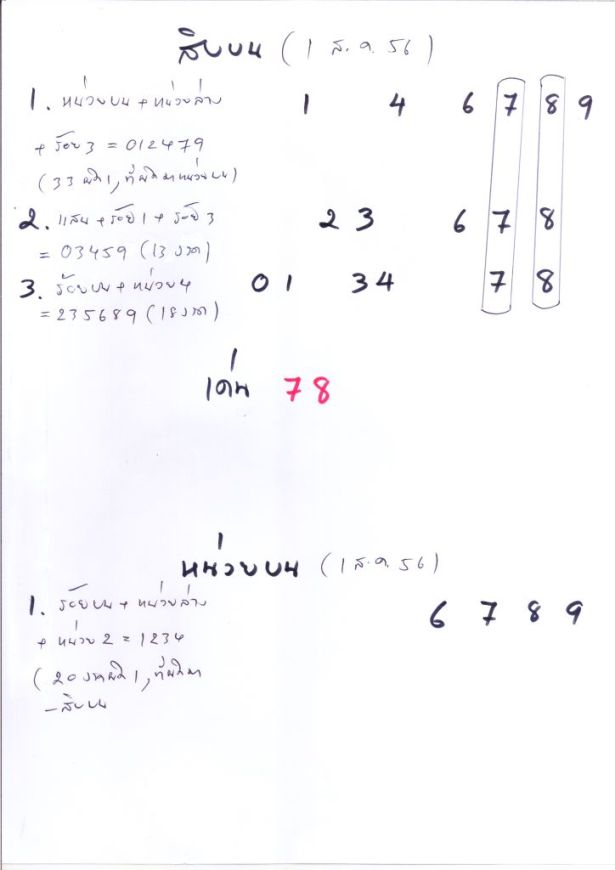 สิบบน (1 ส.ค. 56)
1. หน่วยบน + หน่วยล่าง 1 4 6 7 8 9
+ ร้อย 3 = 012479
(33 ผิด 1, ที่ผิดมาหน่วยบน)
2. แสน + ร้อย 1 + ร้อย 3 2 3 6 7 8
= 03459 (13 งวด)
3. ร้อยบน + หน่วย 4 0 1 3 4 7 8
= 235689 (18 งวด)
เด่น 7 8
หน่วยบน (1 ส.ค. 56)
1. ร้อยบน + หน่วยล่าง 6 7 8 9
+ หน่วย 2 = 1234
(20 งวดผิด 1, ที่ผิดมา
– สิบบน